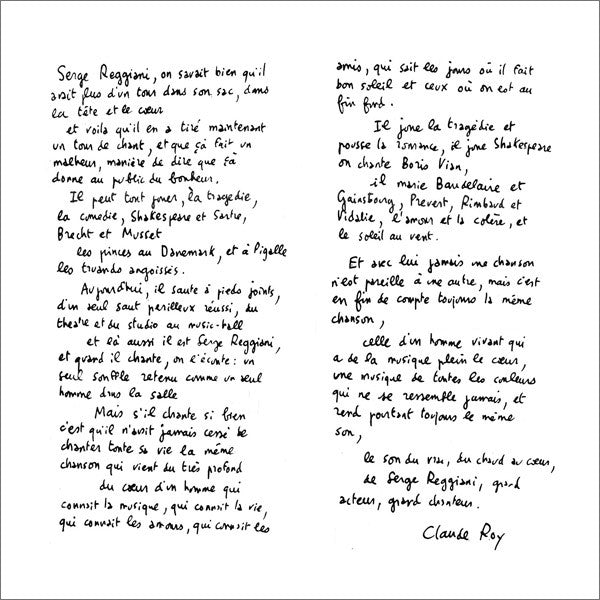 Serge Reggiani, on savait bien qu'il
avait plus d'un tour dans son sac, dans
la tête et le cœur
et voilà qu'il en a tiré maintenant
un tour de chant, et que ça fait un
malheur, manière de dire que ça
donne au public du bonheur.
Il peut tout jouer, la tragédie,
la comédie, Shakespeare et Sartre,
Brecht et Musset
les princes au Danemark, et à Pigalle
les truands angoissés.
Aujourd'hui, il saute à pieds joints,
d'un seul saut périlleux réussi, du
theatre et du studio au music-hall
et là aussi il est Serge Reggiani,
et quand il chante, on l'écoute : un
seul souffle retenu comme un seul
homme dans la salle
Mais s'il chante si bien
c'est qu'il n'avait jamais cessé de
chanter toute sa vie la même
chanson qui vient du très profond
du cœur d'un homme qui
connait la musique, qui connait la vie,
qui connait les amours, qui connait les
amis, qui sait les jours où il fait
bon soleil et ceux où on est au
fin fond.
Il joue la tragédie et
pousse la romance, il joue Shakespeare
on chante Boris Vian,
il marie Baudelaire et
Gainsbourg, Prévert, Rimbaud et
Vidalie, l'amour et la colère, et
le soleil au vent.
Et avec lui jamais une chanson
n'est pareille à une autre, mais c'est
en fin de compte toujours la même
chanson,
celle d'un homme vivant qui
a de la musique plein le cœur,
une musique de toutes les couleurs
qui ne se ressemble jamais, et
rend pourtant toujours le même
son,
le son du vrai, du chaud au cœur,
de Serge Reggiani, grand
acteur, grand chanteur.
Claude Roy